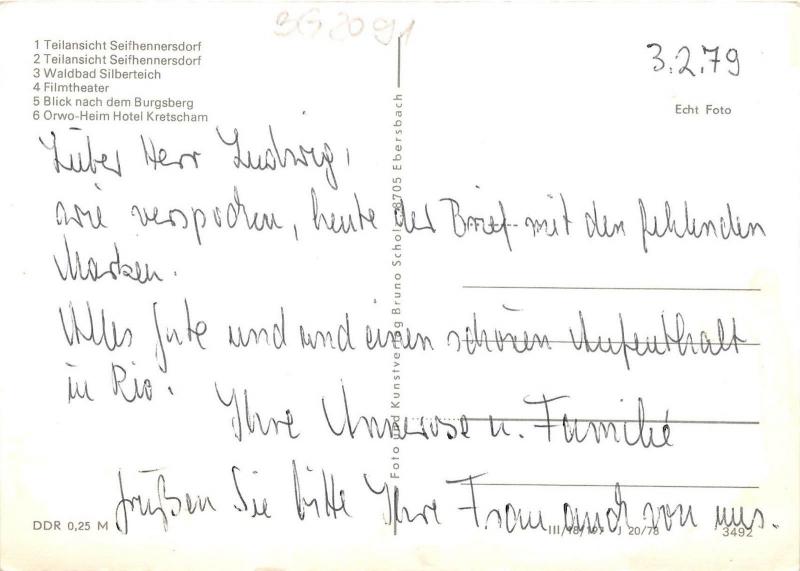 3G2091
1 Teilansicht Seifhennersdorf
2 Teilansicht Seifhennersdorf
3 Waldbad Silberteich
4 Filmtheater
5 Blick nach dem Burgsberg
6 Orwo-Heim Hotel Kretscham
3.2.79
Echt Foto
Lieber Herr Ludwig,
wie verspochen, heute der Brief mit den fehlenden
Marken.
Alles gute und und einen schönen Aufenthalt
in Rio.
Ihre u. Familie
grüßen Sie bitte Ihre Frau auch von uns.
Foto und Kunstverlag Bruno Scholz 8705 Ebersbach
DDR 0,25 M
J 20/78
3492